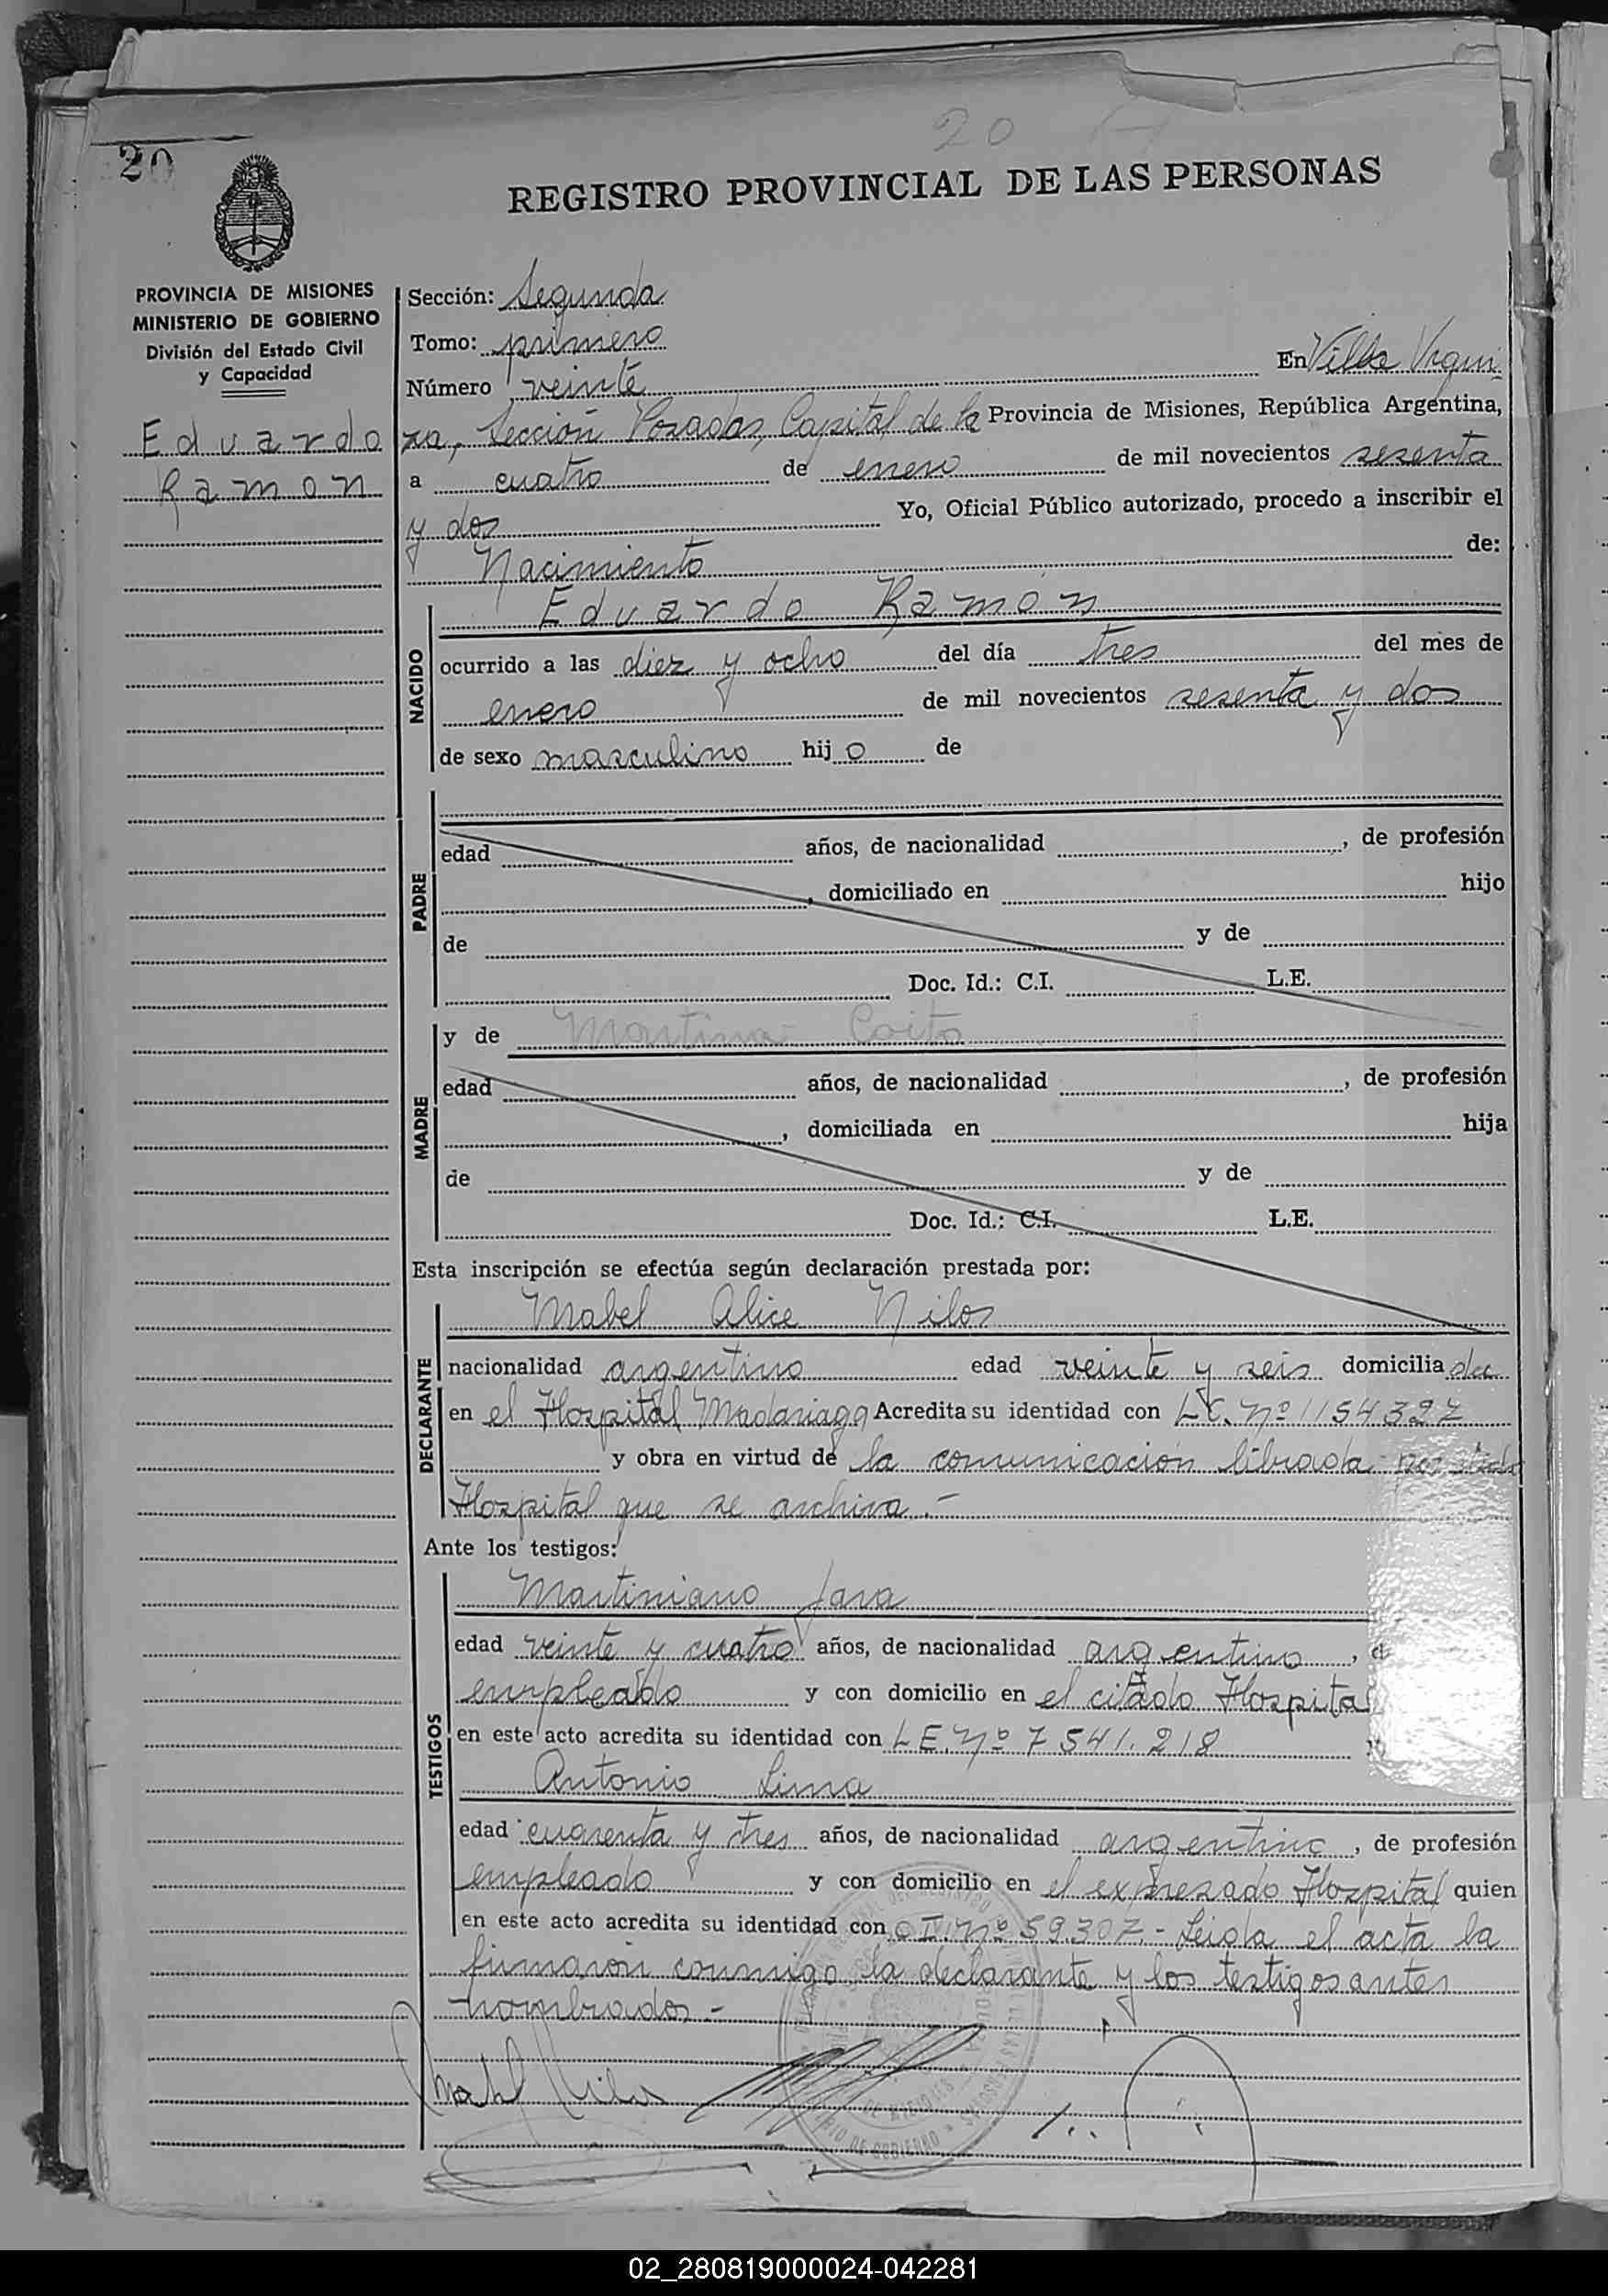 20
20
REGISTRO PROVINCIAL DE LAS PERSONAS
PROVINCIA DE MISIONES
MINISTERIO DE GOBIERNO
División del Estado Civil
y Capacidad
Eduardo
Ramon
Sección: Segunda
Tomo: primero
Número veinte En Villa Urqui-
za, Sección Posadas, Capital de la Provincia de Misiones, República Argentina,
a cuatro de enero de mil novecientos sesenta
y dos Yo, Oficial Público autorizado, procedo a inscribir el
Nacimiento de:
NACIDO
Eduardo Ramón
ocurrido a las diez y ocho del día tres del mes de
enero de mil novecientos sesenta y dos
de sexo masculino hijo de
PADRE
edad años, de nacionalidad , de profesión
, domiciliado en hijo
de y de
Doc. Id.: C.I. L.E.
MADRE
y de Martina Coito
edad años, de nacionalidad , de profesión
, domiciliada en hija
de y de
Doc. Id.: C.I. L.E.
Esta inscripción se efectúa según declaración prestada por:
DECLARANTE
Mabel Alice Nilos
nacionalidad argentino edad veinte y seis domiciliada
en el Hospital Madariaga Acredita su identidad con L.C. Nº 1154327
y obra en virtud de la comunicación librada por
Hospital que se archiva.-
Ante los testigos:
TESTIGOS
Martiniano Jara
edad veinte y cuatro años, de nacionalidad argentino, d
empleado y con domicilio en el citado Hospital
en este acto acredita su identidad con L E. Nº 7541.218
Antonio Lima
edad cuarenta y tres años, de nacionalidad argentino, de profesión
empleado y con domicilio en el expresado Hospital quien
en este acto acredita su identidad con C I. Nº 59.307.- Leida el acta la
firmaron conmigo la declarante y los testigos antes
nombrados.-
Mabel Nilos
02_280819000024-042281